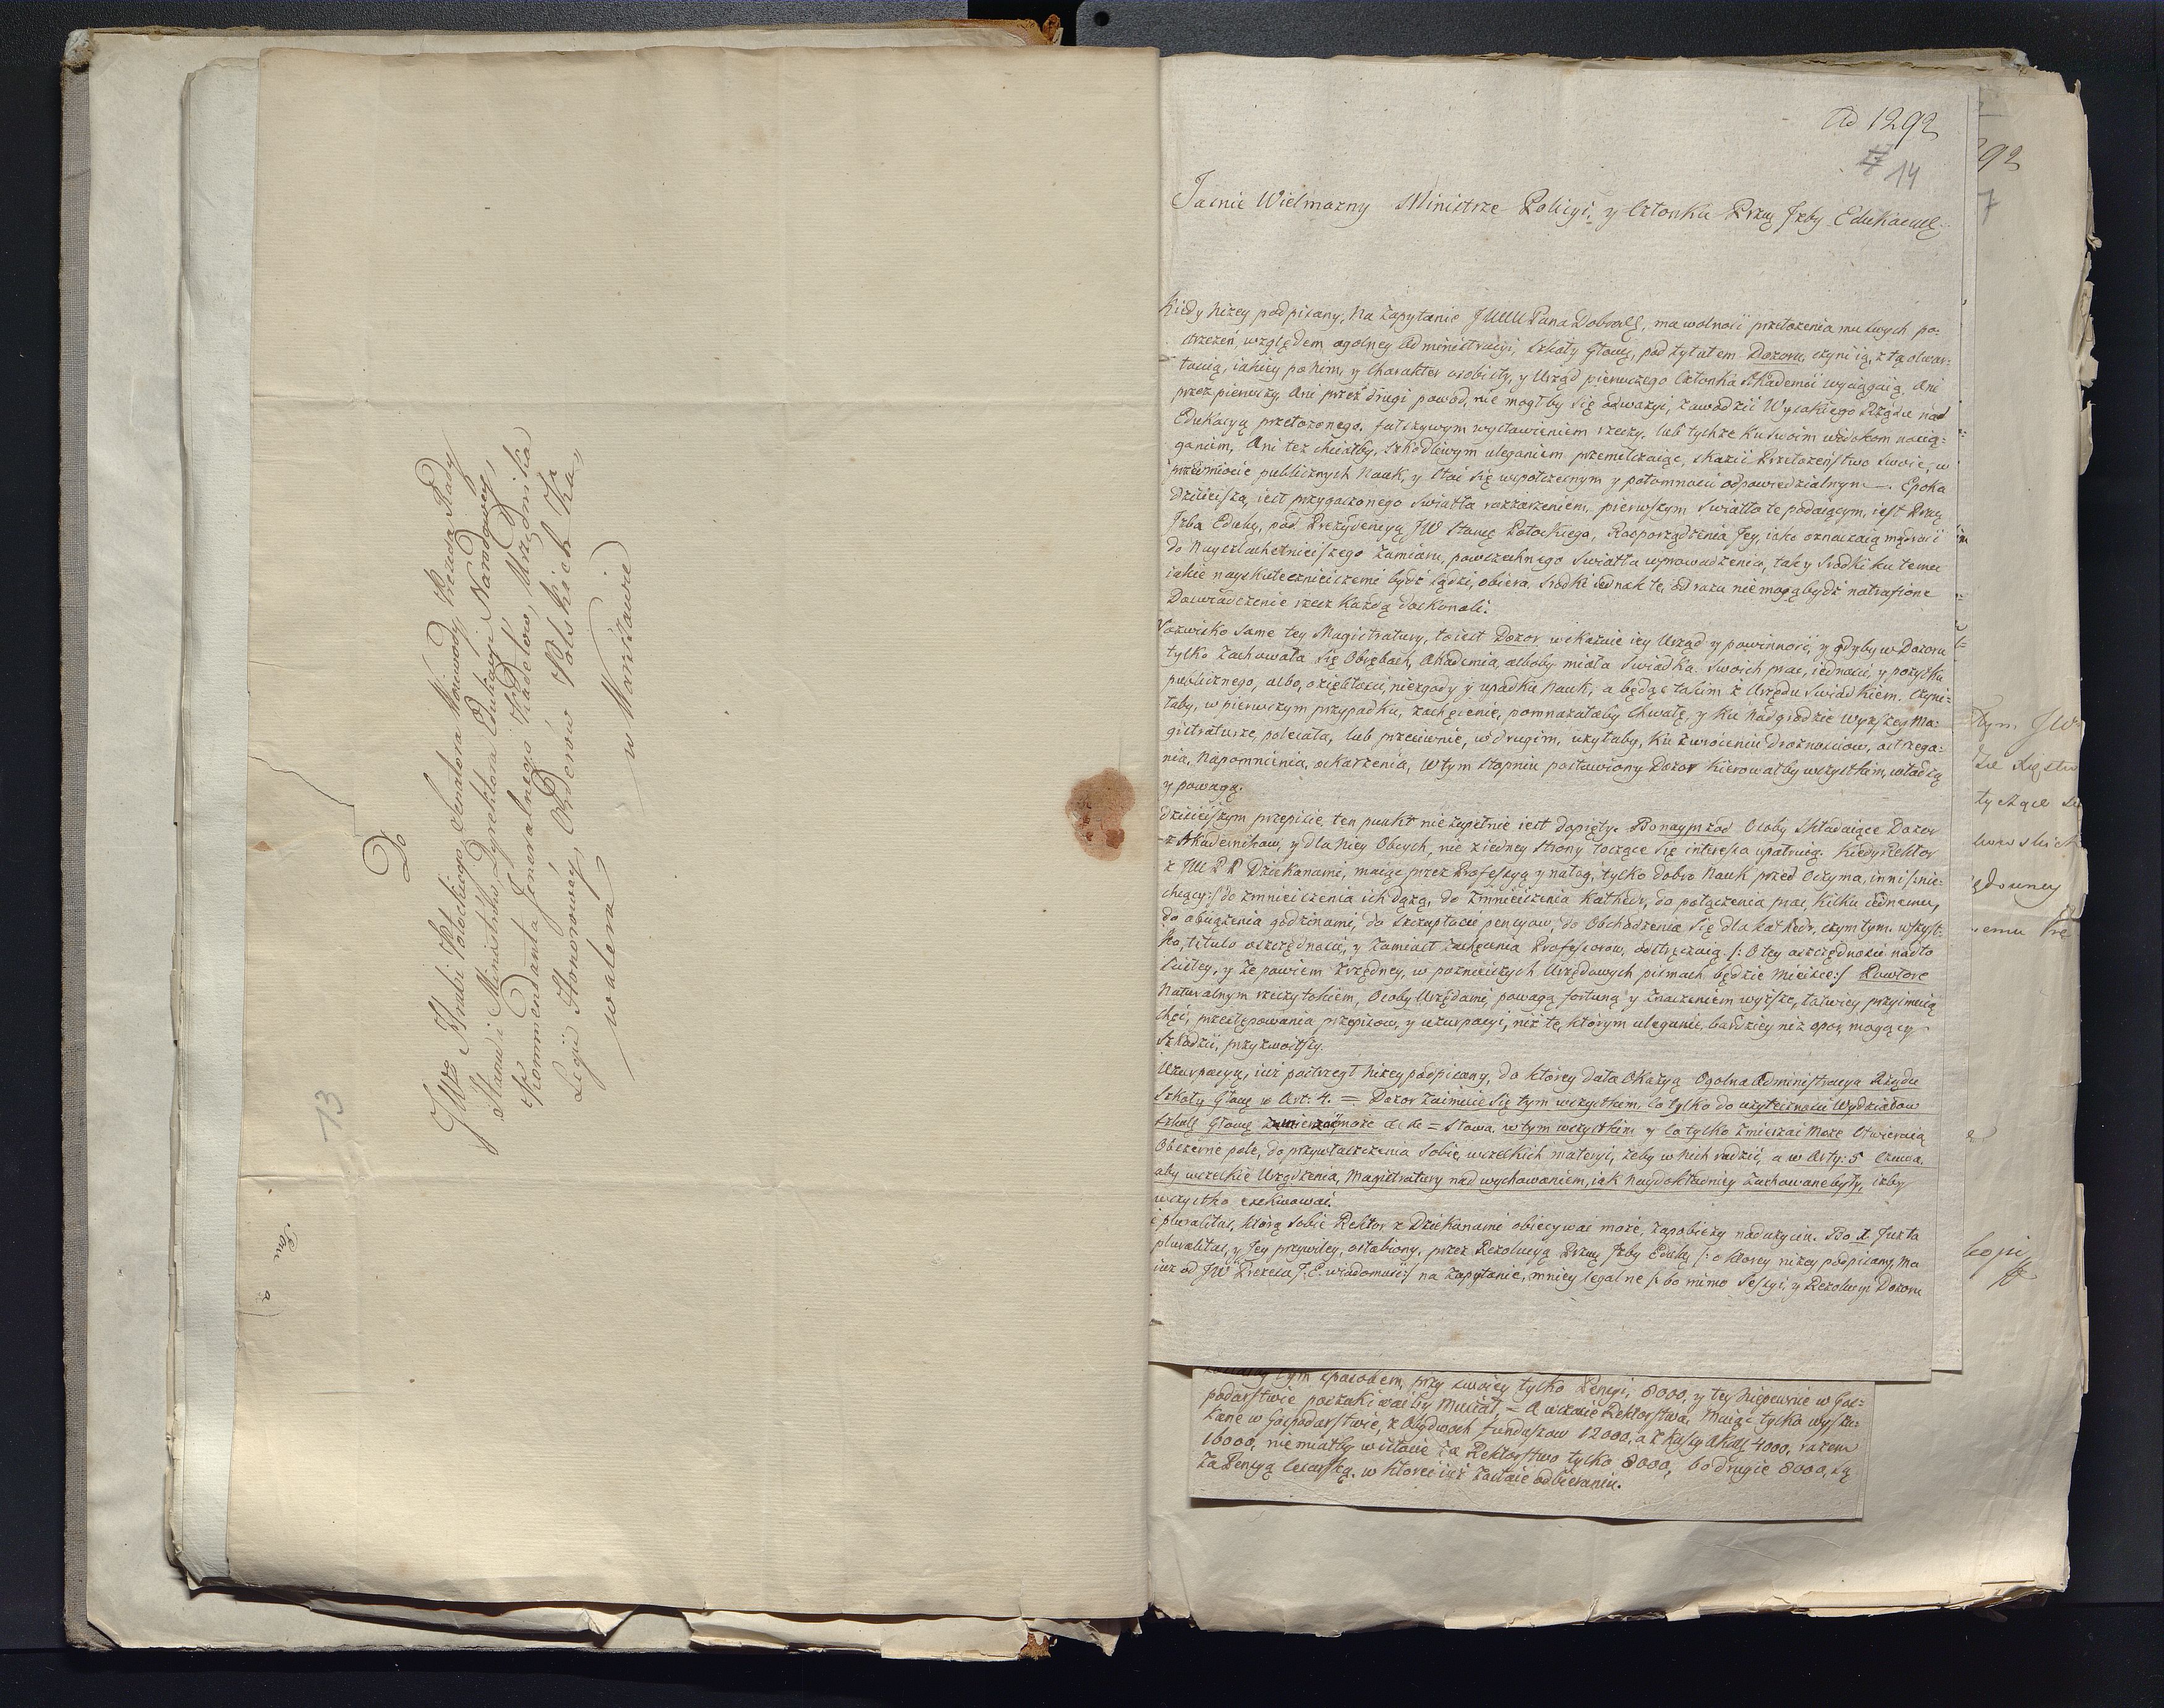 Do
JWo Hrabi Potockiego Senatora Woiewody Prezesa Rady
Stanu i Ministrów, Dyrektora Edukacyi Narodowey,
Kommendanta Jeneralnego Kadetow, Urzędnika
Legii Honorowey, Orderów Polskich Ka-
walera
w Warszawie
13
Ad 1292
14
Jasnie Wielmozny Ministrze Policyi, y Członku Przeę Jzby Edukacyi
Kiedy niżey podpisany, na zapytanie JWW Pana Dobrodz, ma wolność przełożenia mu swych po-
strzeżeń, względem ogolney administracyi, szkoły Główę, pod tytułem Dozoru, czyni ią, z tą otwar-
tością, iakiey po nim, y charakter osobisty, y Urząd pierwszego Członka Akademii wyciągaią. Ani
przez pierwszy, Ani przez drugi powod, nie mogłby się odważyć, zawodzić Wysokiego Rządu nad
Edukacyą przełożonego, fałszywym wystawieniem rzeczy, lub tychże ku swoim widokom nacią-
ganiem, Ani też chciałby, szkodliwym uleganiem przemilczaiąc, skazić Przełożeństwo swoie, w
przedmiocie publicznych Nauk, y stać się współczesnym y potomności odpowiedzialnym. Epoka
dzisieysza, iest przygaszonego światła rozżarzeniem, pierwszym światło te podaiącym, iest Przeę
Jzba Edukę, pod Prezydencyą JW Stanię Potockiego, Rozporządzenia Jey, iako oznaczaią mądrość i
do nayszlachetnieyszego zamiaru, powszechnego światła wprowadzenia, tak y środki ku temu
iakie nayskutecznieyszemi bydź sądzi, obiera. Środki iednak te, od razu nie mogą bydź natrafione
Doświadczenie rzecz każdą doskonali.
Nazwisko same tey Magistratury, to iest Dozor wskazuie iey Urząd y powinność, y gdyby w Dozoru
tylko zachowała się Obrębach, Akademia, alboby miała świadka swoich prac, iedności, y pożytku
publicznego, albo, oziębłości, niezgody y upadku Nauk, a będąc takim z Urzędu świadkiem. Czyni-
łaby, w pierwszym przypadku, zachęcenie, pomnażałaby chwałę, y ku nadgrodzie wyższey Ma-
gistraturze, polecała, lub przeciwnie, w drugim, użyłaby, ku zwróceniu drożności, ostrzega-
nia, Napomnienia, oskarżenia, W tym stopniu postawiony Dozor kierowałby wszystkim, władzą
y powagą.
dzisieyszym przepisie, ten punkt nie zupełnie iest dopięty. Bo naprzod Osoby składaiące Dozor
z Akademikow, y dla Niey Obcych, nie z iedney strony toczące się interessa upatruią. Kiedy Rektor
z JW P P Dziekanami, maiąc przez Professyą y nałóg, tylko dobro Nauk przed oczyma, inni /:nie-
chcący:/ do zmnieyszenia ich dążą, do zmnieyszenia Kathedr, do połączenia prac kilku iednemu,
do obciążenia godzinami, do szczupłości pensyow, do Obchodzenia się dla kathedr, czym tym, wszyst-
ko, titulo oszczędności, y zamiast zachęcania Professorow, odstręczaią /: O tey oszczędności nadto
ścisłey, y że powiem zrzędney, w poznieyszych Urzędowych pismach będzie mieysce:/ Powtore
Naturalnym rzeczy tokiem, Osoby Urzędami, powagą fortuną y znaczeniem wyższe, łatwiey przyimuią
chęć, przestępowania przepisow, y uzurpacyi, niż te, którym uleganie, bardziey niż opor, mogący
szkodzić, przyzwoitszy.
Uzurpacyą, iuż postrzegł niżey podpisany, do ktorey data Okazyą Ogolna Administracya Rządu
Szkoły Główę w Art: 4. = Dozor zaimuie się tym wszystkim, co tylko do użyteczności Wydziałow
szkoły Głowę może etc = słowa, w tym wszystkim y co tylko zmierzać może Otwieraią
Obszerne pole, do przywłaszczenia sobie wszelkich materyi, żeby w nich radzić, a w Arty: 5 czuwa,
aby wszelkie Urządzenia, Magistratury nad wychowaniem, iak naydokładniey zachowane były, iżby
wszystko exekwować.
pluralitas, ktorą sobie Rektor z Dziekanami obiecywać może, zapobieży nadużyciu. Bo 1. Juxta
pluralitas, y Jey przywiley, osłabiony, przez Rezolucyą Przeę Jzby Edukę /: o ktorey niżey podpisany, ma
iuż od JW Prezesa J. E. wiadomość:/ na Zapytanie, mniey legalne /: bo mimo Sessyi, y Rezolucyi Dozoru
tym sposobem, przy swoiey tylko Pensyi, 8000, y tey niepewnie w Gos-
podarstwie poszukiwać by musiał = A wszakże Rektorstwa, maiąc tylko wyka-
zane w Gospodarstwie, z obydwoch funduszow 12000, a z kassy Akad 4000, razem
16000, nie miałby w istocie za Rektorstwo tylko 8000, bo drugie 8000, są
za Pensyą lekarską, w ktorey iuż zostaie odbieraniu.
92
7
tym JW
tyczące
kopij